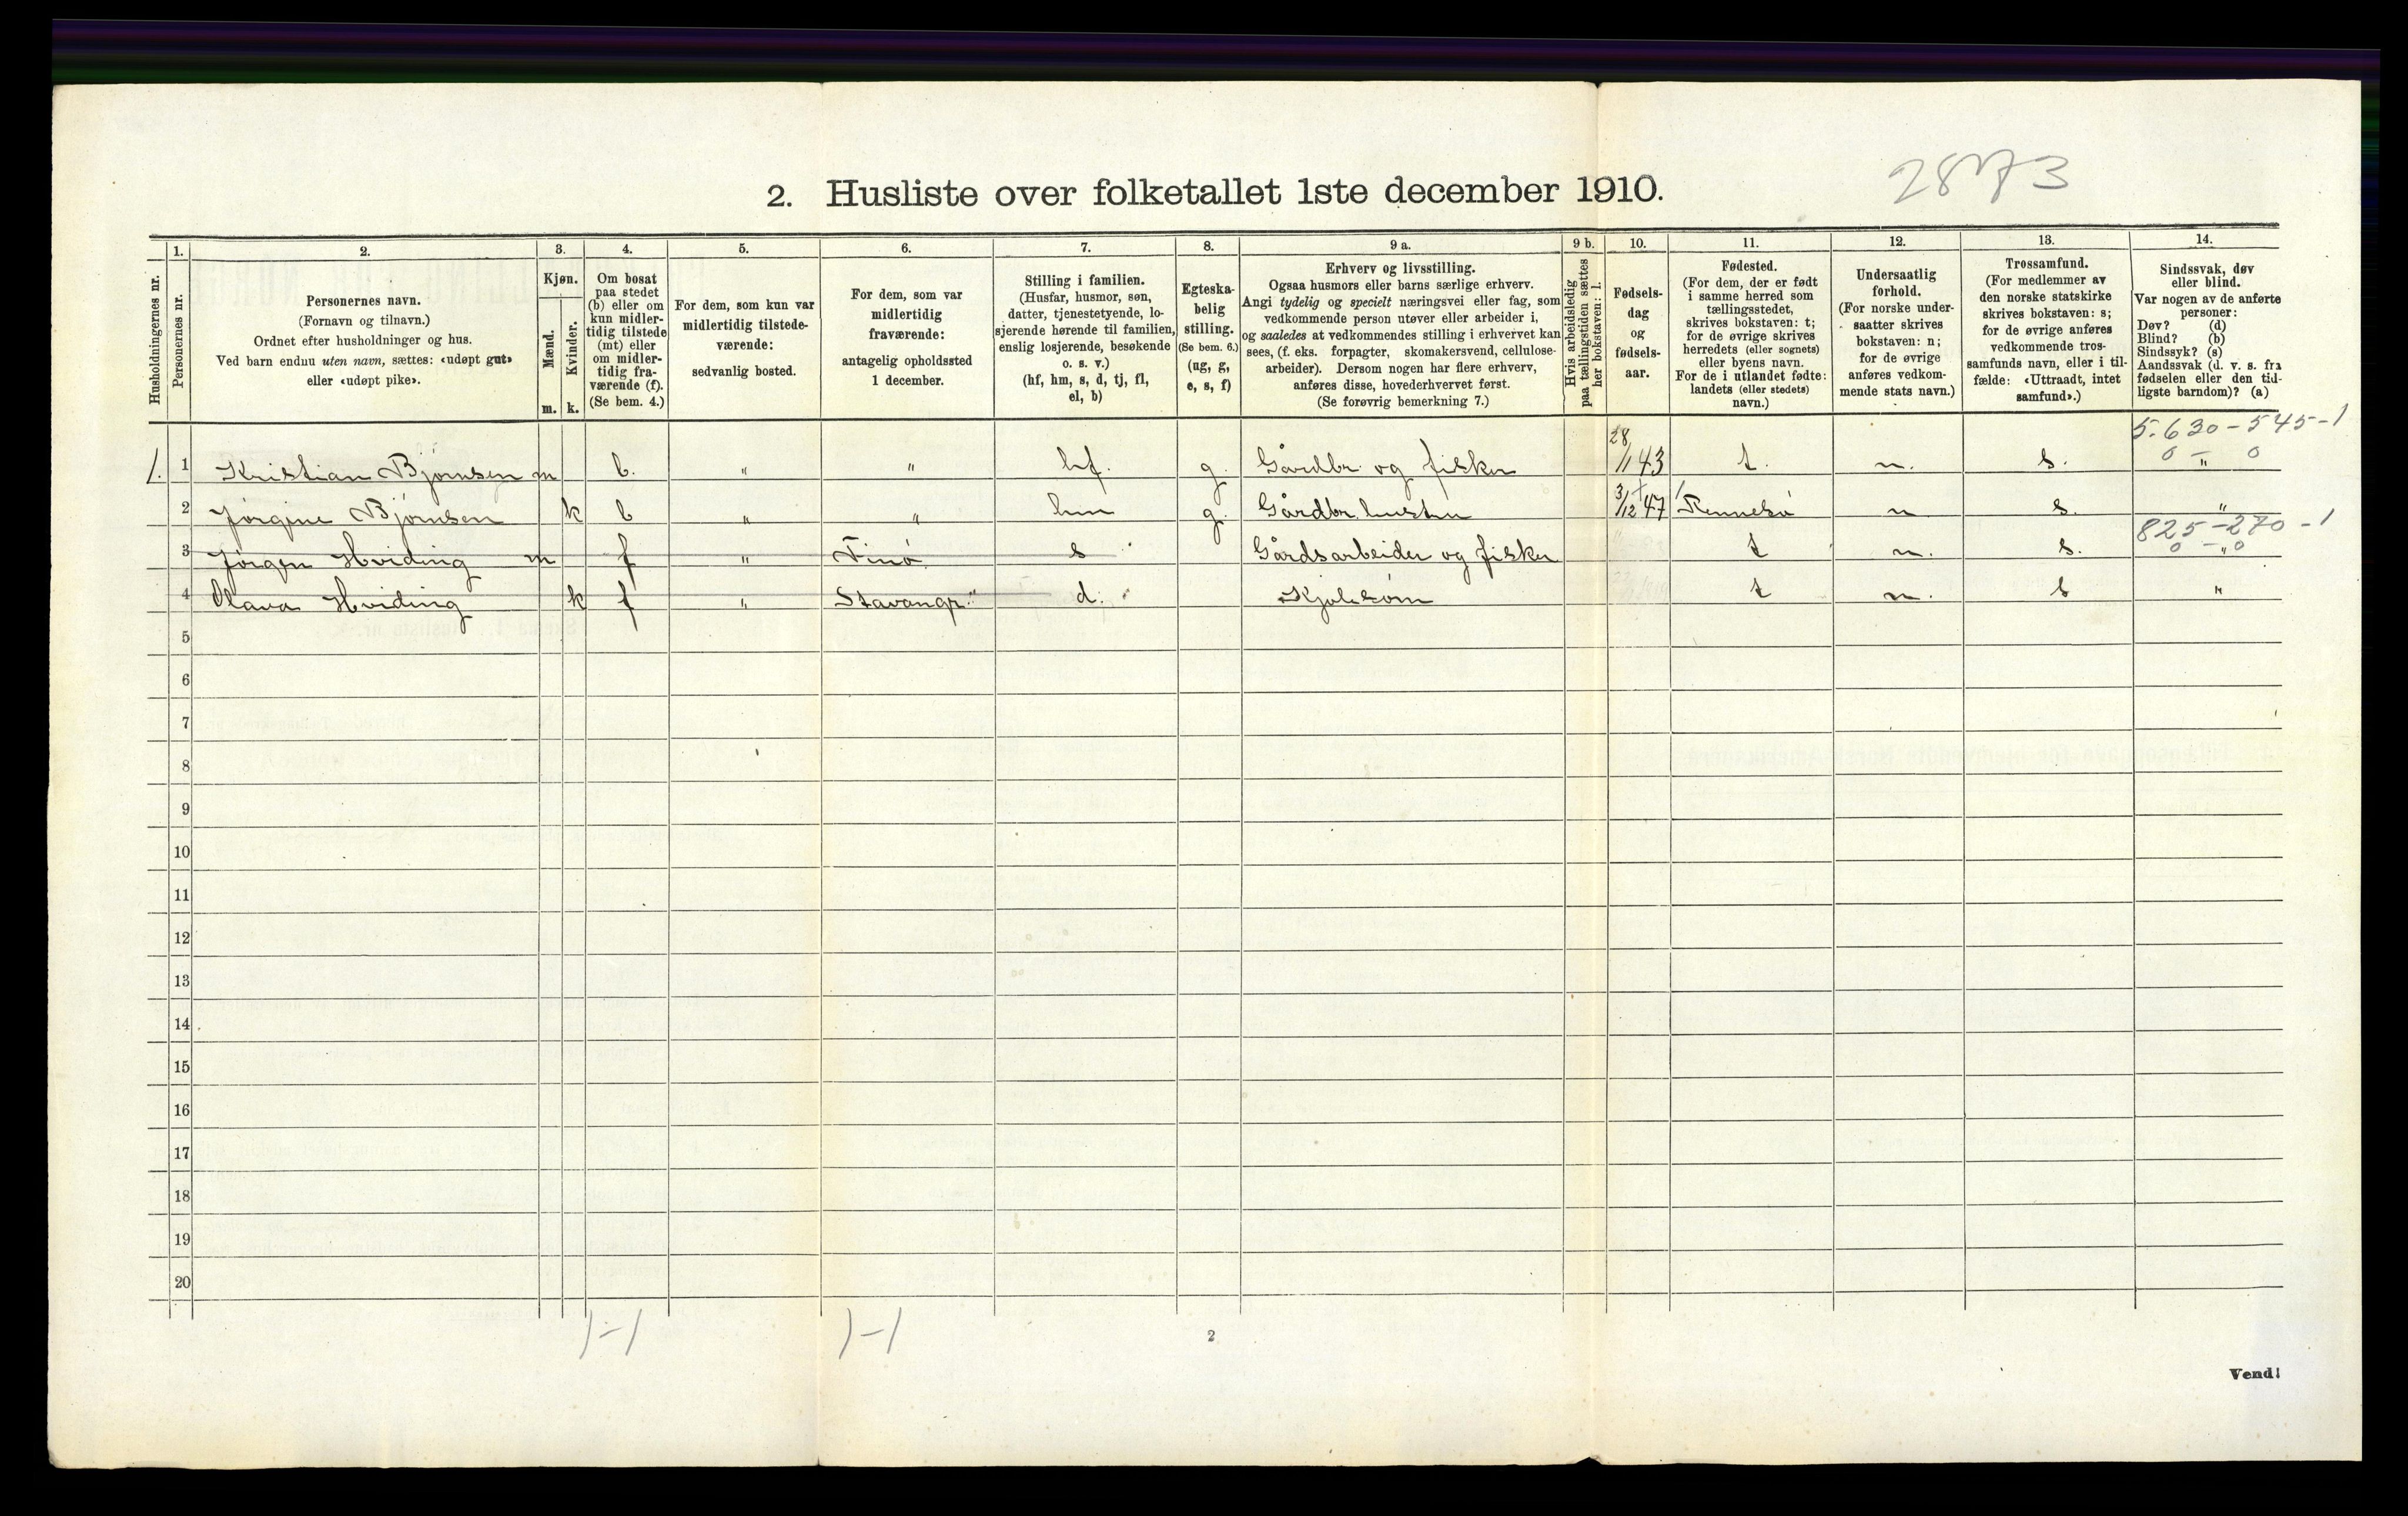 2873
2. Husliste over folketallet 1ste december 1910.
Husholdningernes nr.
1. Personernes nr.
2. Personernes navn.
(Fornavn og tilnavn.)
Ordnet efter husholdninger og hus.
Ved barn endnu uten navn, sættes: «udøpt gut»
eller «udøpt pike».
3. Kjøn.
Mænd. m.
Kvinder. k.
4. Om bosat
paa stedet
(b) eller om
kun midler-
tidig tilstede
(mt) eller
om midler-
tidig fra-
værende (f).
(Se bem. 4.)
5. For dem, som kun var
midlertidig tilstede-
værende:
sedvanlig bosted.
6. For dem, som var
midlertidig
fraværende:
antagelig opholdssted
1 december.
7. Stilling i familien.
(Husfar, husmor, søn,
datter, tjenestetyende, lo-
sjerende hørende til familien,
enslig losjerende, besøkende
o. s. v.)
(hf, hm, s, d, tj, fl,
el, b)
8. Egteska-
belig
stilling.
(Se bem. 6.)
(ug, g,
e, s, f)
9 a. Erhverv og livsstilling.
Ogsaa husmors eller barns særlige erhverv.
Angi tydelig og specielt næringsvei eller fag, som
vedkommende person utøver eller arbeider i,
og saaledes at vedkommendes stilling i erhvervet kan
sees, (f. eks. forpagter, skomakersvend, cellulose-
arbeider). Dersom nogen har flere erhverv,
anføres disse, hovederhvervet først.
(Se forøvrig bemerkning 7.)
9 b. Hvis arbeidsledig
paa tællingstiden sættes
her bokstaven: l.
10. Fødsels-
dag
og
fødsels-
aar.
11. Fødested.
(For dem, der er født
i samme herred som
tællingsstedet,
skrives bokstaven: t;
for de øvrige skrives
herredets (eller sognets)
eller byens navn.
For de i utlandet fødte:
landets (eller stedets)
navn.)
12. Undersaatlig
forhold.
(For norske under-
saatter skrives
bokstaven: n;
for de øvrige
anføres vedkom-
mende stats navn.)
13. Trossamfund.
(For medlemmer av
den norske statskirke
skrives bokstaven: s;
for de øvrige anføres
vedkommende tros-
samfunds navn, eller i til-
fælde: «Uttraadt, intet
samfund».)
14. Sindssvak, døv
eller blind.
Var nogen av de anførte
personer:
Døv? (d)
Blind? (b)
Sindssyk? (s)
Aandssvak (d. v. s. fra
fødselen eller den tid-
ligste barndom)? (a)
5.630 - 545 - 1
0 - 0
1. 1 Kristian Bjørnsen m b. " " hf. g. Gårdbr. og fisker 28/1 43 t. n. s. "
2 Jørgine Bjørnsen k b " " hm g. Gårdbr. hustru 3/12 47 Rennesø n s. "
825 - 270 - 1
0 - 0
3 Jørgen Hviding m f " Finø s Gårdsarbeider og fisker t n. s. "
4 Olava Hviding k f " Stavanger d. t n. s "
5
6
7
8
9
10
11
12
13
14
15
16
17
18
19
20
1-1
1-1
2
Vend!